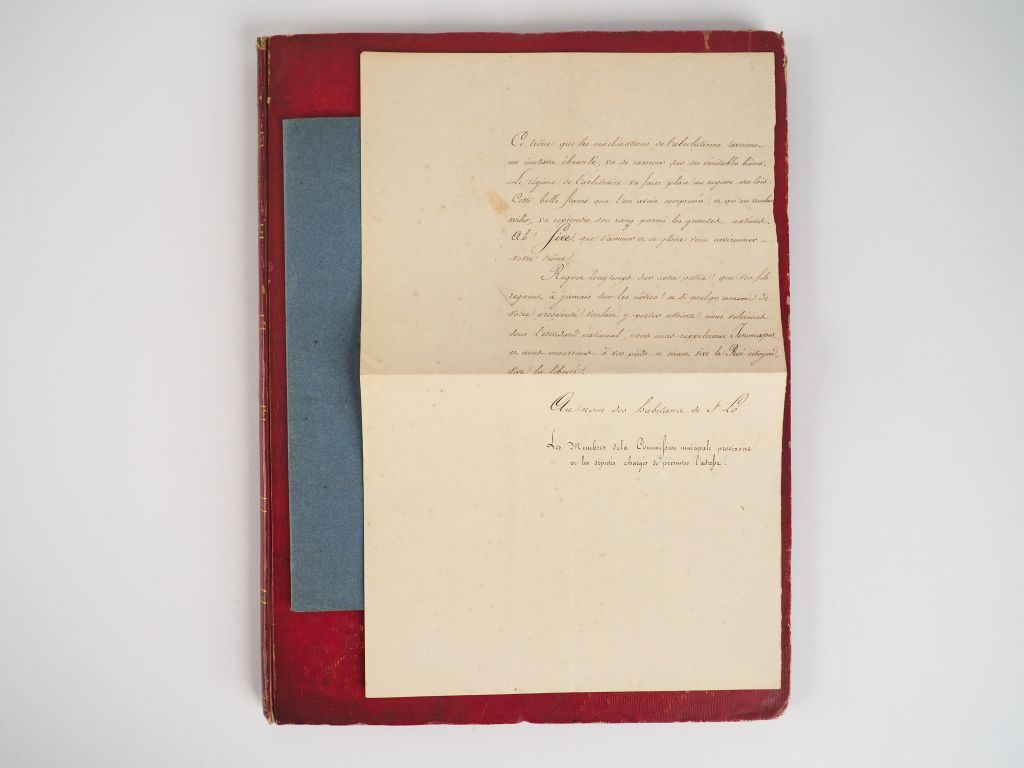 Ce trône que les machinations de l'absolutisme avaient
un instant ébranlé, va se rasseoir sur ses véritables bases.
Le régime de l'arbitraire va faire place au régime des lois.
Cette belle france que l'on avait comprimée, et qu'on voulait
avilir, va reprendre son rang parmi les grandes nations.
Ah! Sire, que d'amour et de gloire vont environner
votre trône!
Régnez longtemps sur notre patrie! que vos fils
règnent à jamais sur les nôtres! et si quelqu'ennemi de
votre prospérité voulait y porter atteinte, nous volerions
sous l'étendard national, nous nous rappellerions Jemmapes,
et nous mourrions à vos pieds, en criant vive le Roi-citoyen,
vive la liberté!
Au nom des habitans de St Lo
Les Membres de la Commission municipale provisoire
et les députés chargés de présenter l'adresse.